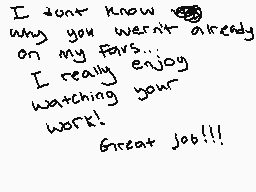 I dont know
why you wern't already
on my favs...
I really enjoy
watching your
work!
Great job!!!